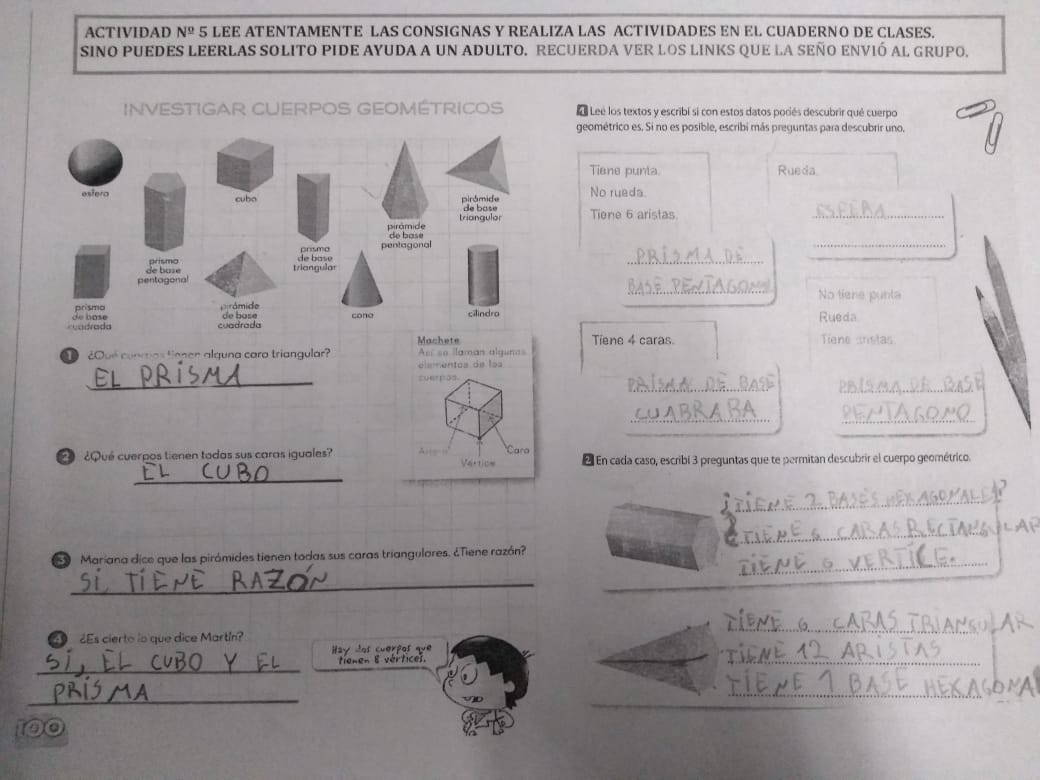 ACTIVIDAD Nº 5 LEE ATENTAMENTE LAS CONSIGNAS Y REALIZA LAS ACTIVIDADES EN EL CUADERNO DE CLASES.
SINO PUEDES LEERLAS SOLITO PIDE AYUDA A UN ADULTO. RECUERDA VER LOS LINKS QUE LA SEÑO ENVIÓ AL GRUPO.
INVESTIGAR CUERPOS GEOMÉTRICOS
esfera
prisma
de base
pentagonal
cubo
prisma
de base
triangular
pirámide
de base
pentagonal
pirámide
de base
triangular
prisma
de base
cuadrada
pirámide
de base
cuadrada
cono
cilindro
1 ¿Qué cuerpos tienen alguna cara triangular?
EL PRISMA
Machete
Así se llaman algunos
elementos de los
cuerpos.
Arista
Cara
Vértice
2 ¿Qué cuerpos tienen todas sus caras iguales?
EL CUBO
3 Mariana dice que las pirámides tienen todas sus caras triangulares. ¿Tiene razón?
SI, TIENE RAZÓN
4 ¿Es cierto lo que dice Martín?
SI, EL CUBO Y EL
PRISMA
Hay dos cuerpos que
tienen 8 vértices.
100
1 Leé los textos y escribí si con estos datos podés descubrir qué cuerpo
geométrico es. Si no es posible, escribí más preguntas para descubrir uno.
Tiene punta.
No rueda.
Tiene 6 aristas.
PRISMA DE
BASE PENTAGONAL
Rueda.
ESFERA
Tiene 4 caras.
PRISMA DE BASE
CUABRABA
No tiene punta
Rueda.
Tiene aristas.
PRISMA DE BASE
PENTAGONO
2 En cada caso, escribí 3 preguntas que te permitan descubrir el cuerpo geométrico.
¿TIENE 2 BASES HEXAGONALES?
¿TIENE 6 CARAS RECTANGULAR
TIENE 6 VERTICE.
TIENE 6 CARAS TRIANGULAR
TIENE 12 ARISTAS
TIENE 1 BASE HEXAGONA